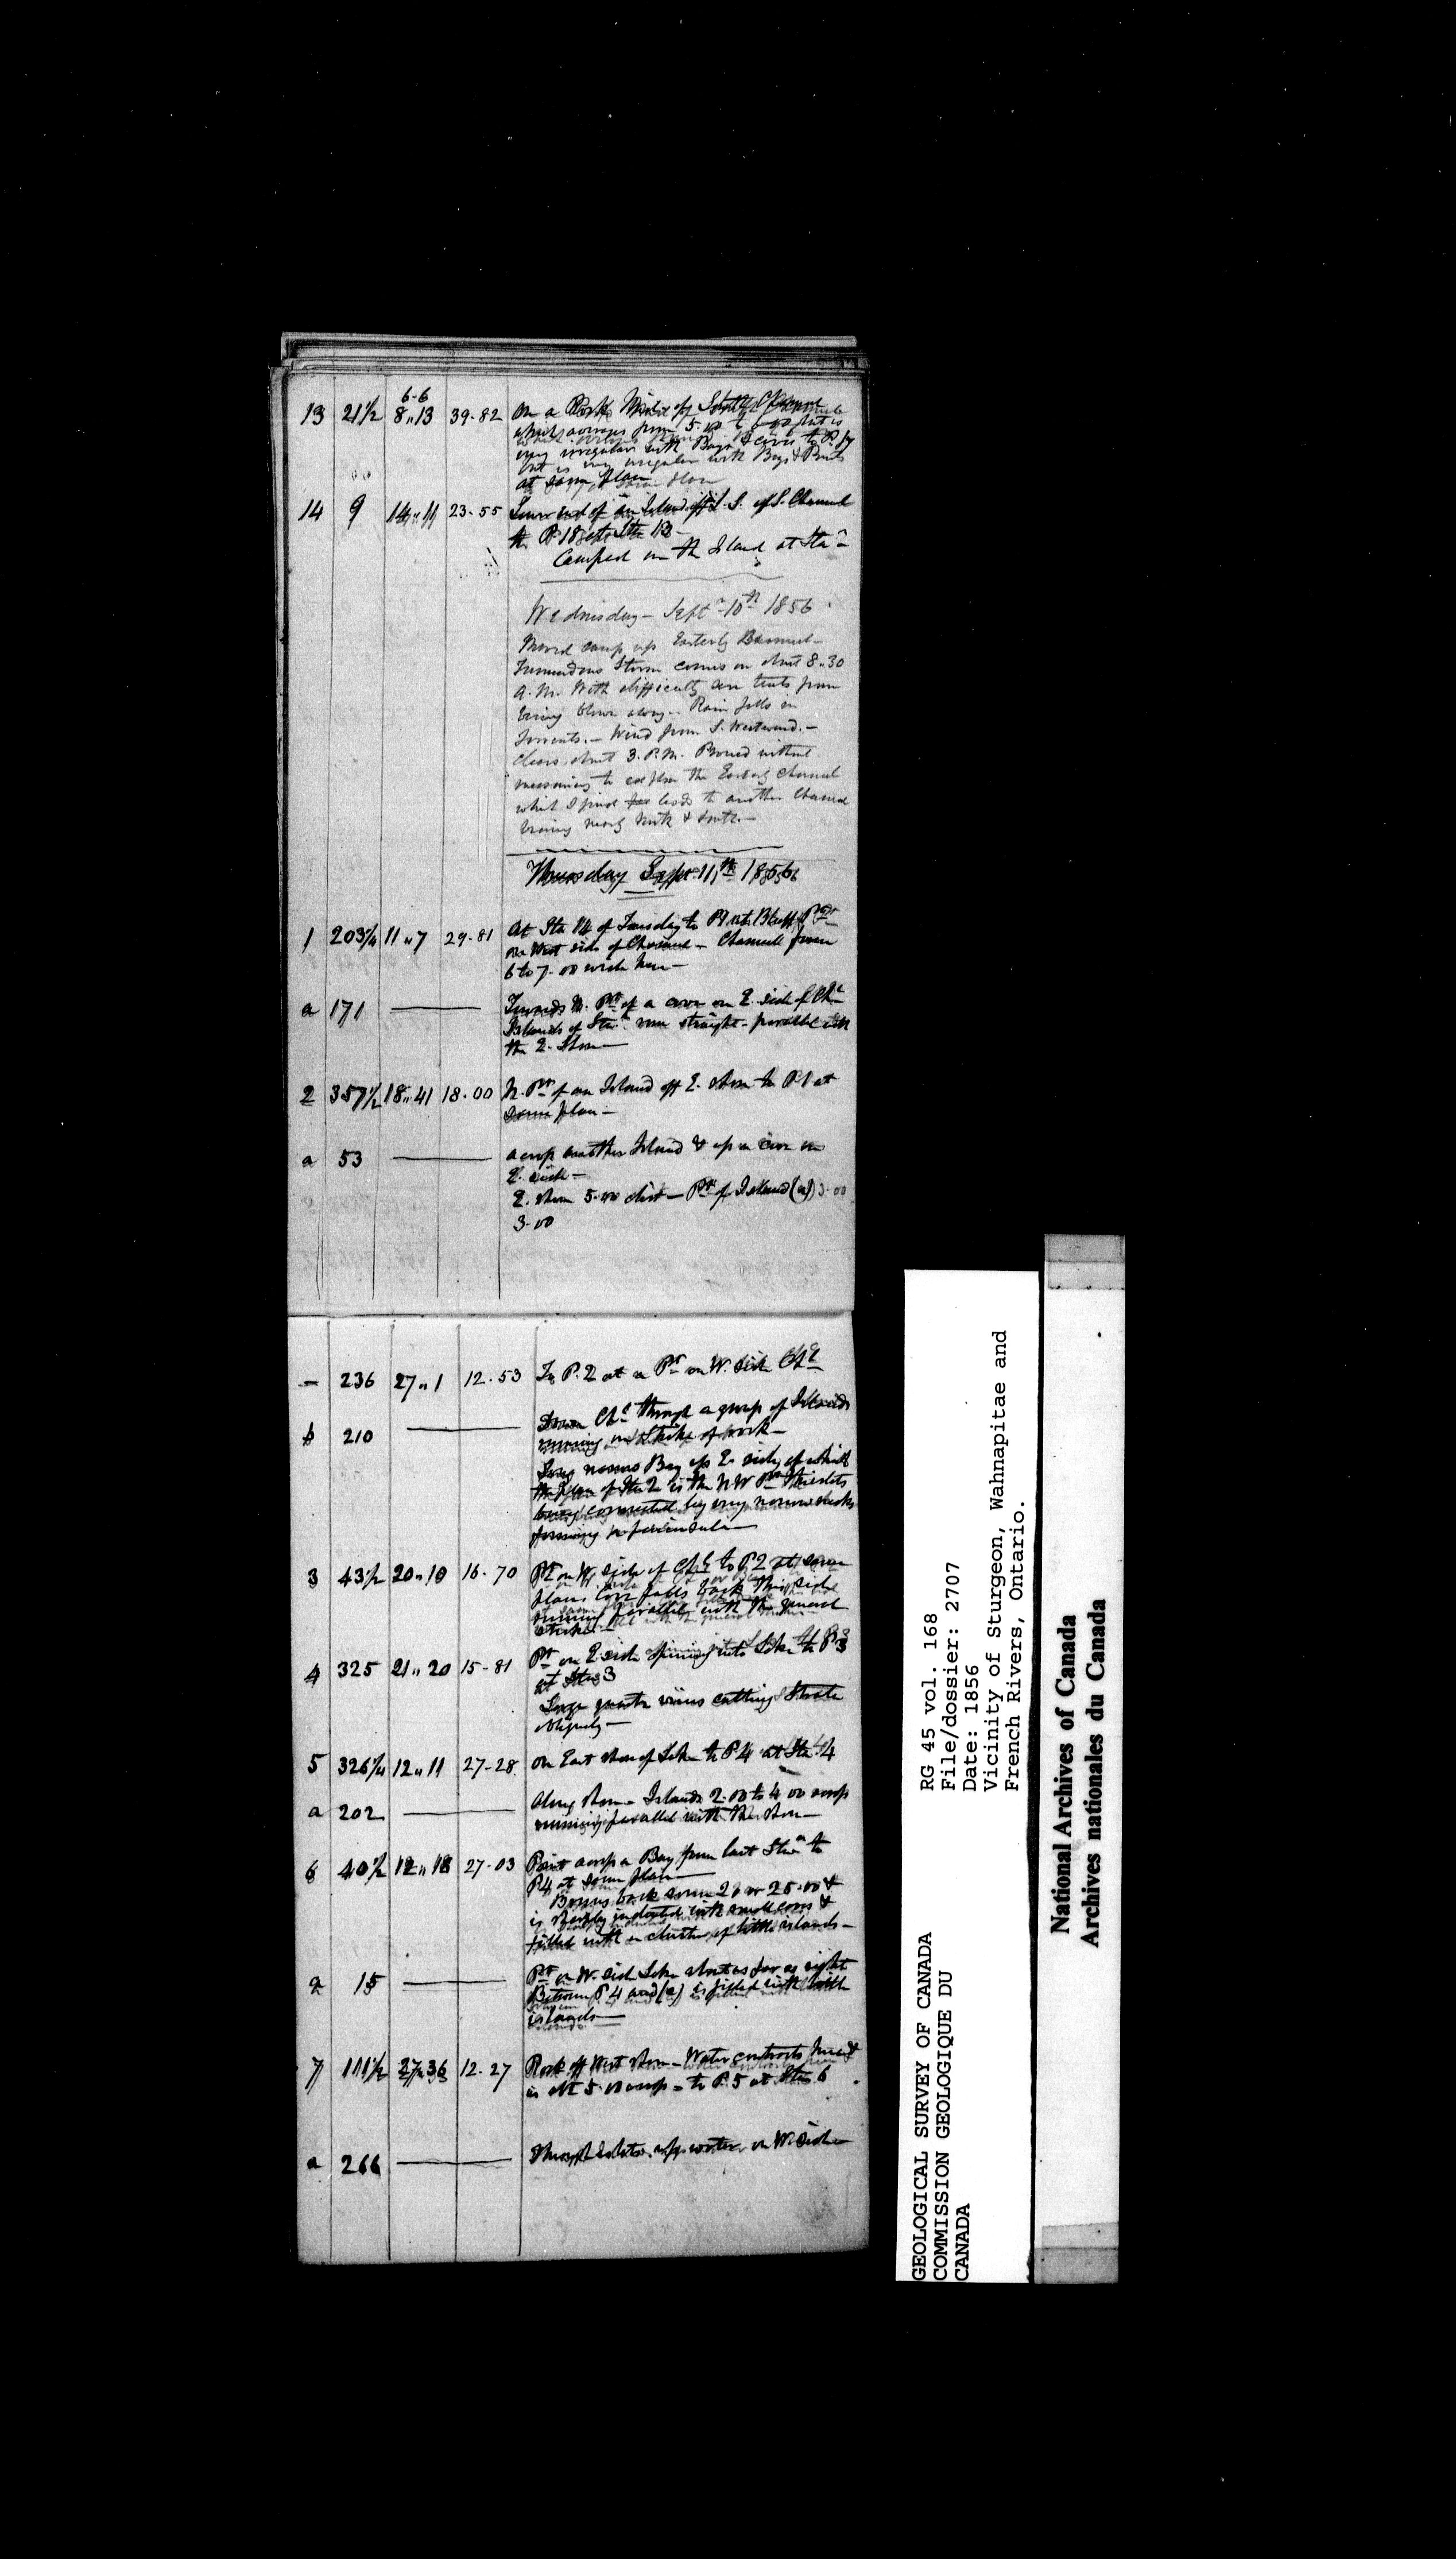 6-6
13 21½ 8"13 39-82 On a Rock West of South Channel
which averages from 5.00 to
very irregular with Bays & coves to P.
but is very irregular with Bays & Points
at same place
14 9 14"11 23-55 Lower end of an Island off S. S. of S. Channel
to P. 18 at Sta 13 -
Camped on the Island at Stan
Wednesday - Septr 10th 1856
Moved camp up Easterly Channel -
Tremendous Storm comes on about 8"30
A.M. With difficulty save tents from
being blown away - Rain falls in
torrents. - Wind from S. Westward. -
Clears about 3. P.M. Proceed without
measuring to explore the Easterly Channel
which I find leads to another Channel
bearing nearly North & South -
Thursday Sept 11th 1856
1 203¼ 11"7 29-81 At Sta 14 of Tuesday to P1 at Bluff Pnt
on West side of Channel - Channel from
6 to 7.00 wide here -
a 171 Towards N. Pnt of a cove on E. side of Chl
Islands of Stan run straight - parallel with
the E. Shore
2 357½ 18"41 18-00 N. Pnt of an Island off E. shore to P1 at
same place -
a 53 across another Island & up a cove on
E. side -
E. shore 5-00 dist - Pnt of Island (a) 3-00
3-00
- 236 27"1 12-53 To P. 2 at a Pnt on W. side Chl
b 210 Down Chl through a group of Islands
running on Strike of rock -
Long narrow Bay up E. side of which
the place of Sta 2 is the N W Pnt The islets
being connected by very narrow necks
forming a peninsula
3 43½ 20"10 16-70 Pnt on W. side of Chl to P2 at same
place Cove falls back this side
running parallel with the general
strike -
4 325 21"20 15-81 Pnt on E side opening into Lake to P3
at Sta 3
Large quartz veins cutting Strata
obliquely -
5 326¼ 12"11 27-28 On East shore of Lake to P4 at Sta. 4
a 202 Along shore Islands 2.00 to 4 00 across
running parallel with the shore -
6 40½ 12"18 27-03 Point across a Bay from last Stan to
P4 at same place
Bay runs back some 20 or 25.00 &
is deeply indented with small coves &
filled with a cluster of little islands -
a 15 Pnt on W. side Lake about as far as sight
Between P4 and (a) is filled with little
islands
7 111½ 27"36 12-27 Rock off West shore - Water contracts here &
is abt 5.00 across - to P. 5 at Sta 6
a 266 Through islets up water on W. side
GEOLOGICAL SURVEY OF CANADA
COMMISSION GEOLOGIQUE DU
CANADA
RG 45 vol. 168
File/dossier: 2707
Date: 1856
Vicinity of Sturgeon, Wahnapitae and
French Rivers, Ontario.
National Archives of Canada
Archives nationales du Canada